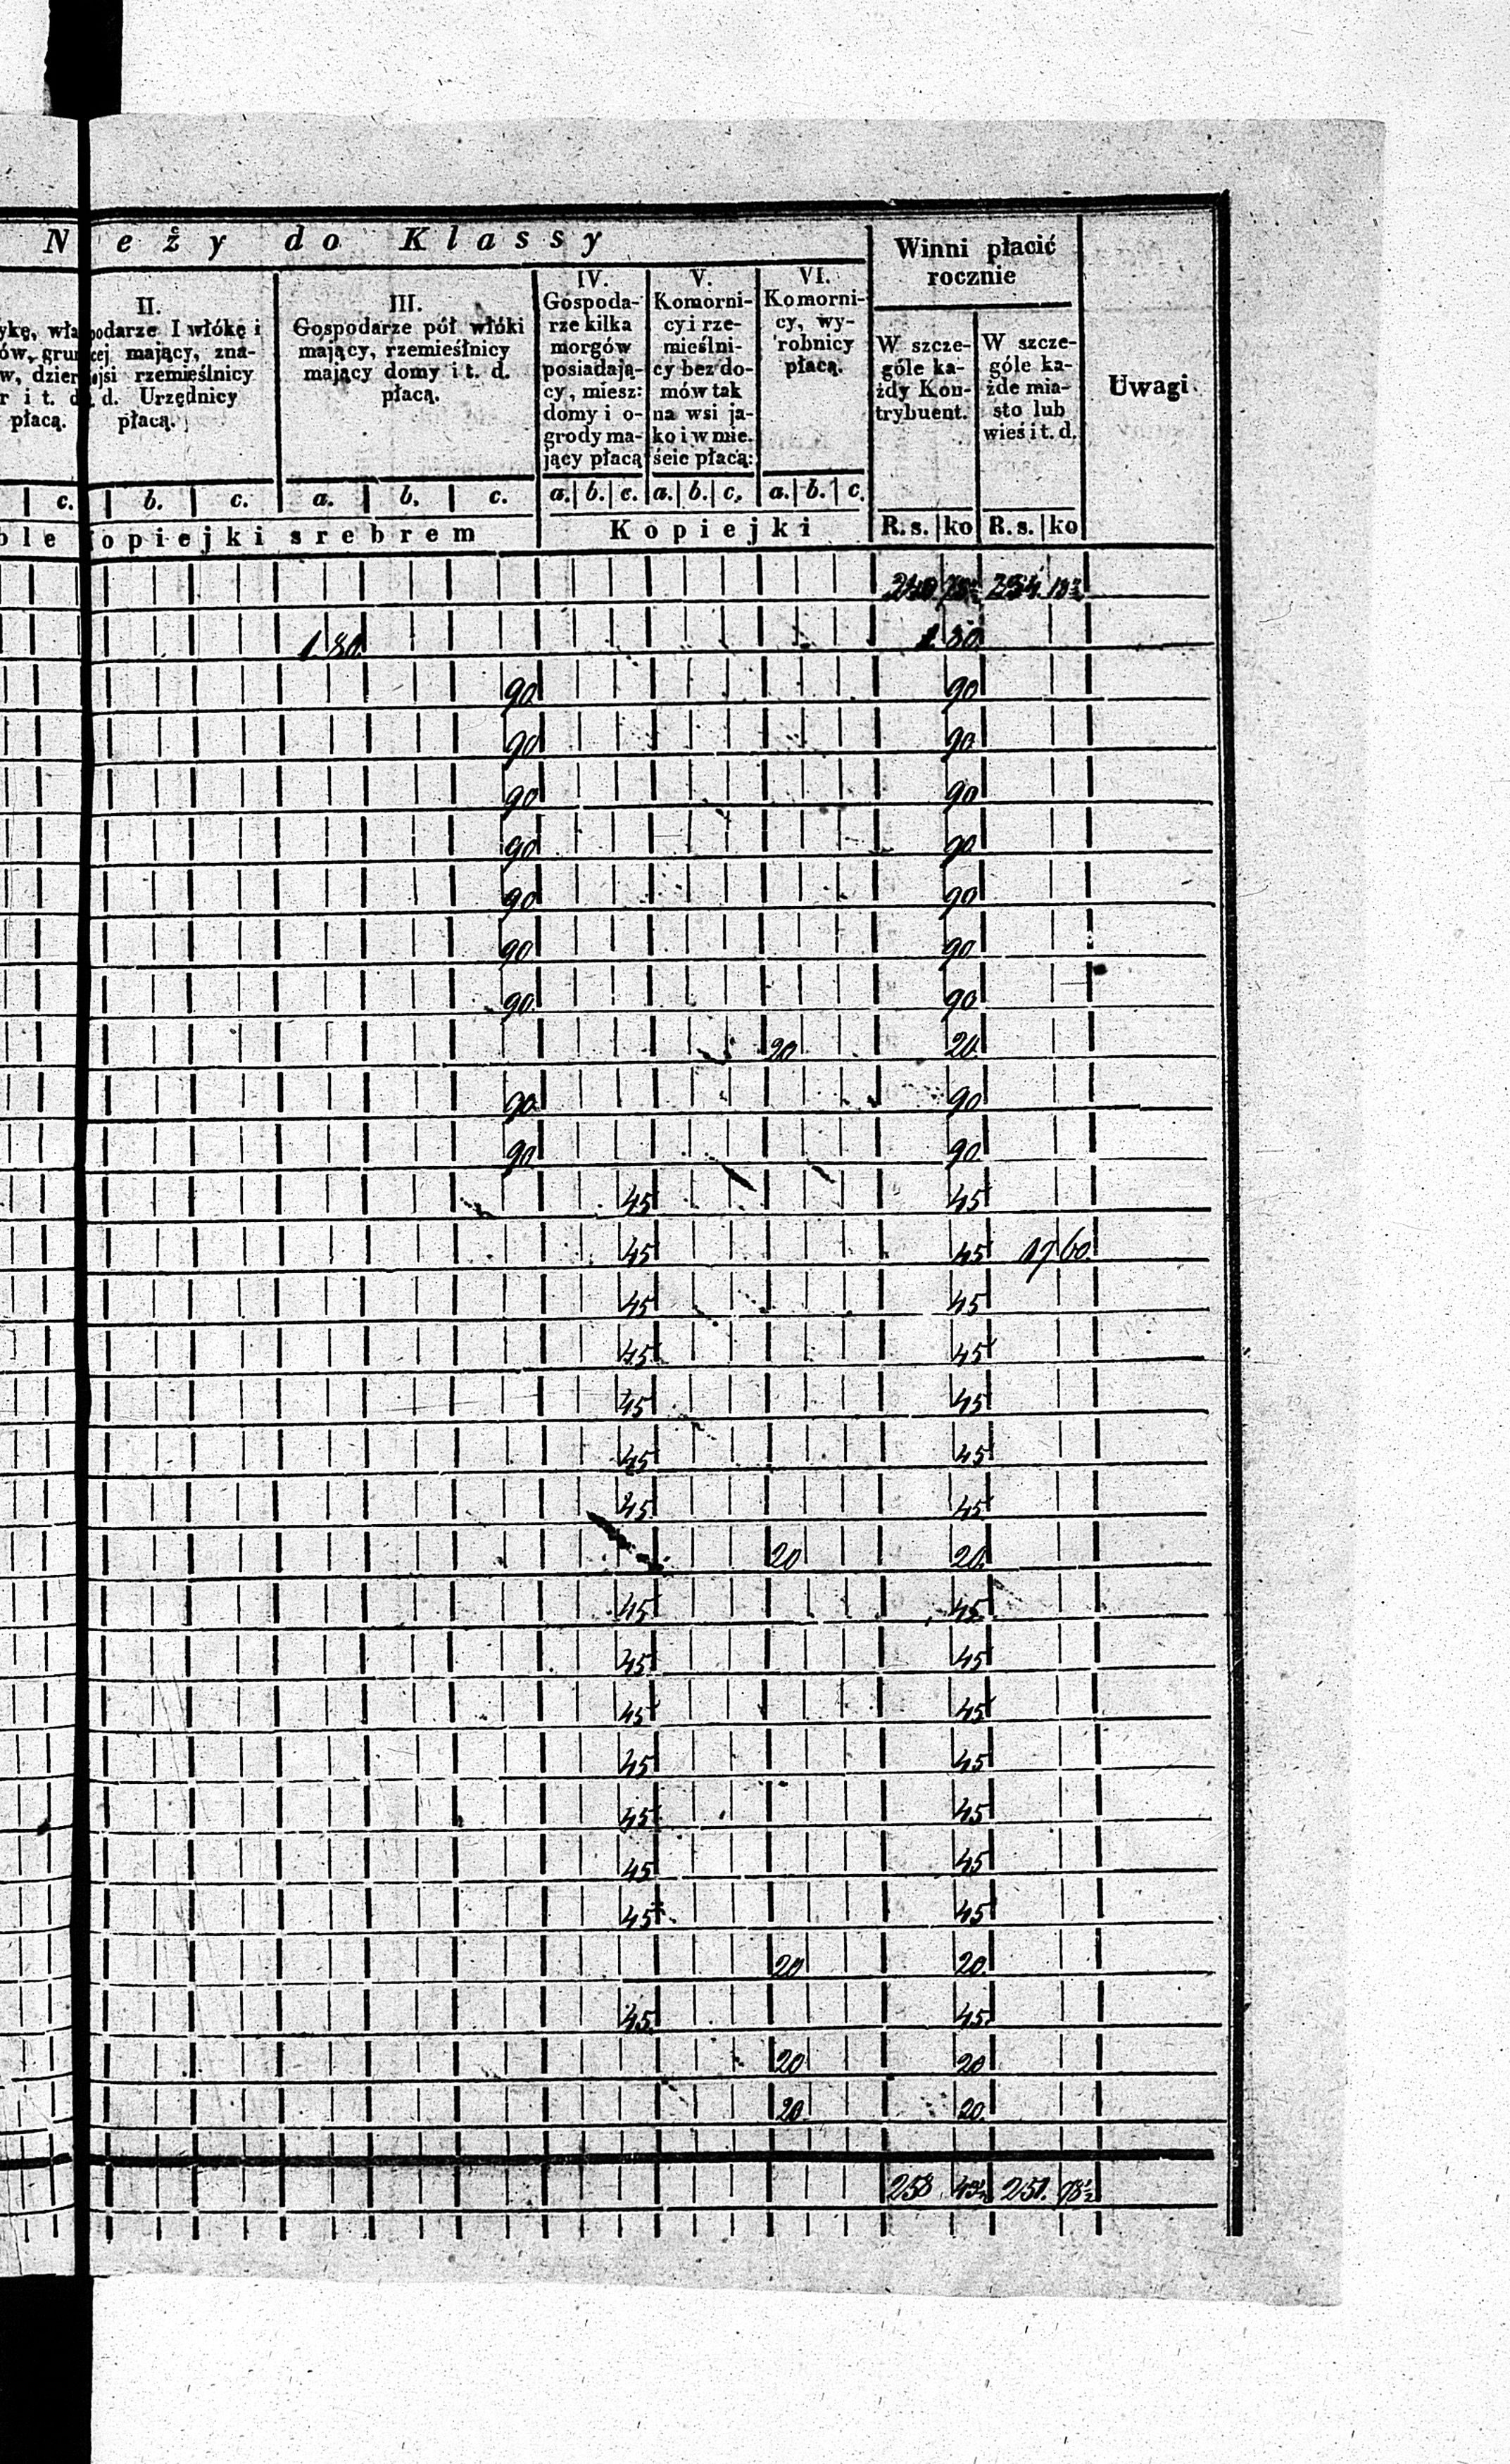 N eży do Klassy
Winni płacić
rocznie
Uwagi
ykę, wła
ów, grun
w, dzier
r i t. d
płacą.
II.
podarze I włókę i
cej mający, zna-
ojsi rzemieślnicy
d. Urzędnicy
płacą.
III.
Gospodarze pół włóki
mający, rzemieślnicy
mający domy i t. d.
płacą.
IV.
Gospoda-
rze kilka
morgów
posiadają-
cy, miesz:
domy i o-
grody ma-
jący płacą
V.
Komorni-
cy i rze-
mieślni-
cy bez do-
mów tak
na wsi ja-
ko i w mie.
ście płacą:
VI.
Komorni-
cy, wy-
robnicy
płacą.
W szcze-
góle ka-
żdy Kon-
trybuent.
W szcze-
góle ka-
żde mia-
sto lub
wieś i t. d.
c. b. c. a. b. c. a. b. c. a. b. c. a. b. c.
ble opiejki srebrem Kopiejki R. s. ko R. s. ko
1 80 1 80
90 90
90 90
90 90
90 90
90 90
90 90
90 90
20 20
90 90
90 90
45 45
45 45 17 60
45 45
45 45
45 45
45 45
45 45
20 20
45 45
45 45
45 45
45 45
45 45
45 45
45 45
20 20
45 45
20 20
20 20
258 251. 78½